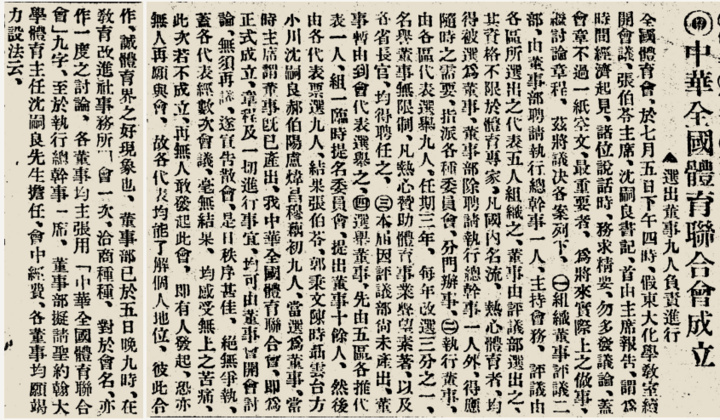 ㊣中華全國體育聯合會成立
▲選出董事九人負責進行
全國體育會、於七月五日下午四時、假東大化學敎室續
開會議、張伯苓主席、沈嗣良書記、首由主席報告、謂爲
時間經濟起見、諸位說話時、務求精要、勿多發議論、蓋
會章不過一紙空文、最重要者、爲將來實際上之做事、
遂討論章程、茲將議決各案列下、㊀組織董事評議二
部、由董事部聘請執行總幹事一人、主持會務、評議由
各區所選出之代表五人組織之、董事由評議部選出之
其資格不限於體育專家、凡國內名流、熱心體育者、均
得被選爲董事、董事部除聘請執行總幹事一人外、得應
隨時之需要、指派各種委員會、分門辦事、㊁執行董事、
由各區代表選舉九人、任期三年、每年改選三分之一、
名譽董事無限制、凡熱心贊助體育事業聲望素著、以及
各省長官、均得聘任之、㊂本屆因評議部尙未產出、董
事暫由到會代表選舉之、㊃選舉董事、先由五區各推代
表一人、組一臨時提名委員會、提出董事十餘人、然後
由各代表票選九人、結果張伯苓、郭秉文陳時聶雲台方
小川沈嗣良郝伯陽盧煒昌穆藕初九人、當選爲董事、當
時主席謂董事旣已產出、我中華全國體育聯合會、卽爲
正式成立、章程及一切進行事宜、均可由董事會開會討
論、無須再議、遂宣吿散會、是日秩序甚佳、絕無爭執、
蓋各代表經數次會議、毫無結果、均感受無上之苦痛、
此次若不成立、再無人敢發起此會、卽有人發起、恐亦
無人再願與會、故各代表均能了解個人地位、彼此合
作、誠體育界之好現象也、董事部已於五日晚九時、在
敎育改進社事務所開會一次、洽商種種、對於會名、亦
作一度之討論、各董事均主張用「中華全國體育聯合
會」九字、至於執行總幹事一席、董事部擬請聖約翰大
學體育主任沈嗣良先生擔任、會中經費、各董事均願竭
力設法云、